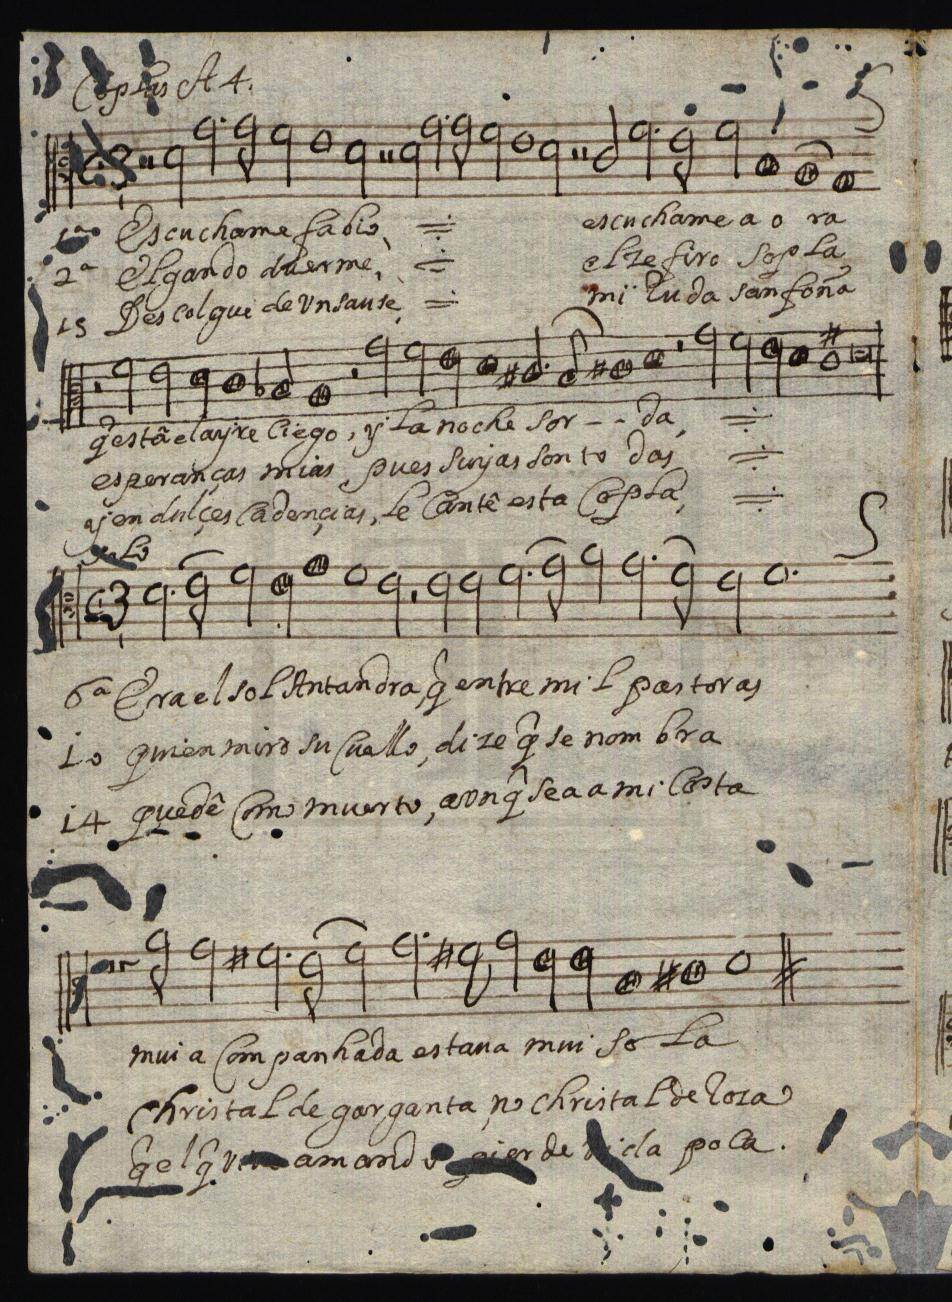 Coplas A 4.
1ª Escuchame fabio, escuchame a o ra
2ª El gando duerme, el zefiro sopla
13 Descolguè de Un sause, mi ruda sanfoña
q̃ està el ayre ciego, y la noche sor - - da,
esperanças mias, pues surjas son to das
y en dulçes cadençias, le cantè esta Copla,
solo
6ª Era el sol Antandra, q̃ entre mil pastoras
10 quien mirò su Cuello, dize q̃ se nombra
14 quedè Como muerto, aunq̃ sea a mi Costa
mui a Compañada estaua mui so la
Christal de garganta, no Christal de roza
q̃ el q̃ amando pierde vida poca.